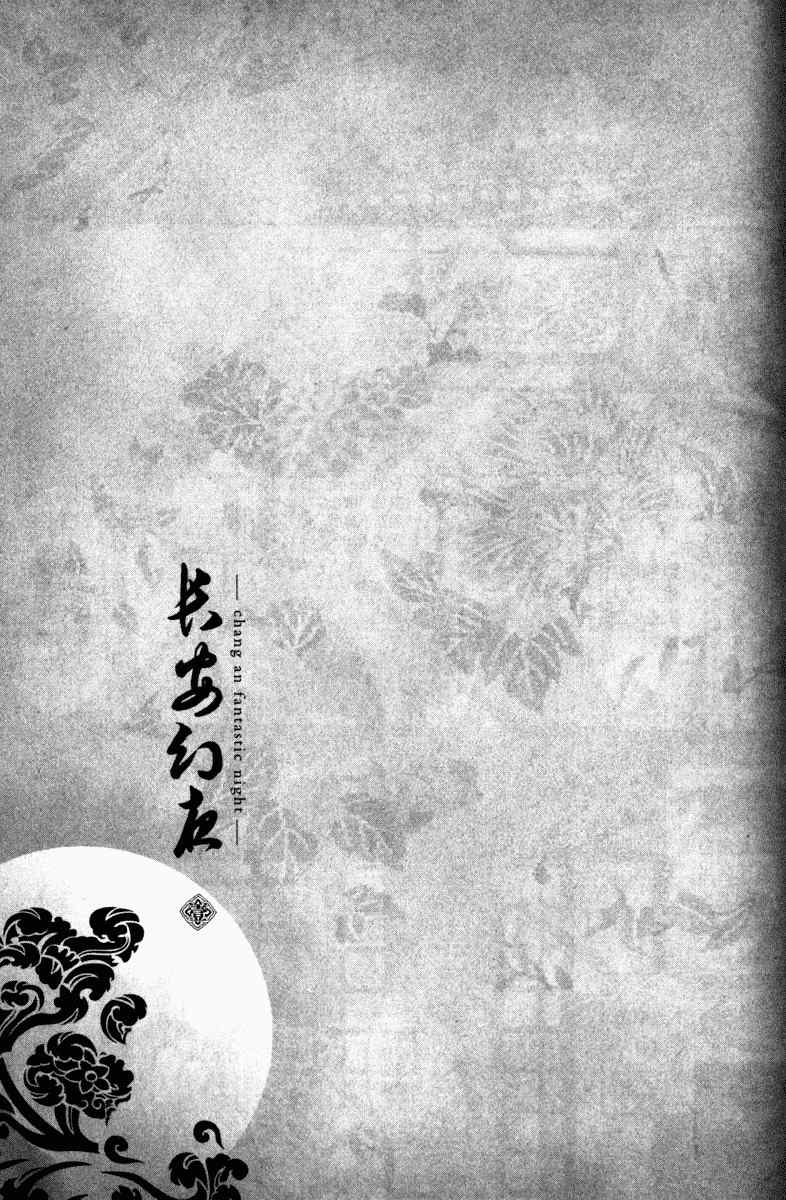 长安幻夜
— chang an fantastic night —